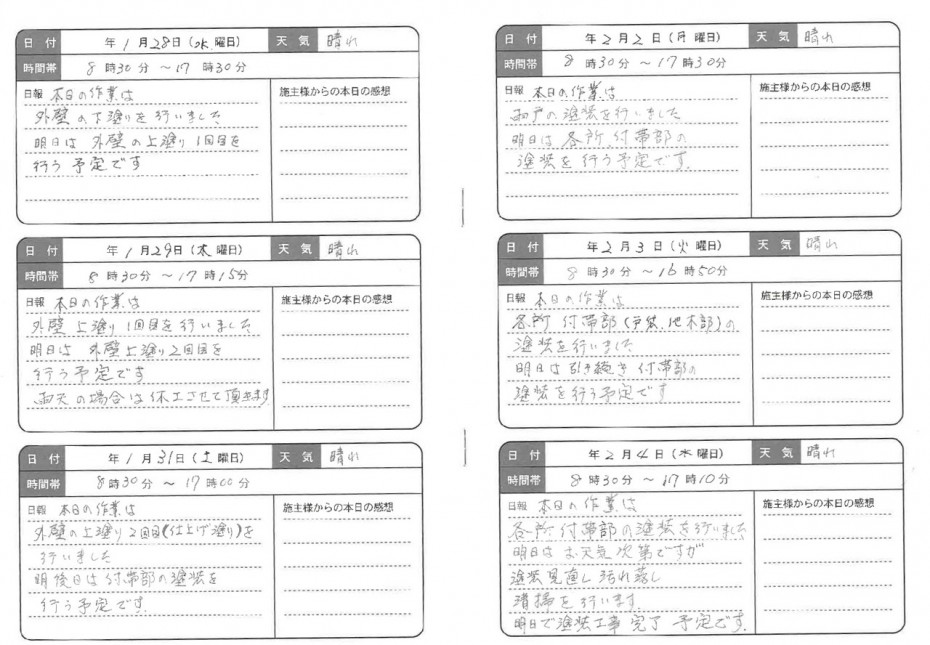 日付 年1月28日(水曜日) 天気 晴れ
時間帯 8時30分～17時30分
日報 本日の作業は
外壁の下塗りを行いました
明日は 外壁の上塗り1回目を
行う予定です
施主様からの本日の感想
日付 年1月29日(木曜日) 天気 晴れ
時間帯 8時30分～17時15分
日報 本日の作業は
外壁上塗り1回目を行いました
明日は 外壁上塗り2回目を
行う予定です
雨天の場合は休工させて頂きます
施主様からの本日の感想
日付 年1月31日(土曜日) 天気 晴れ
時間帯 8時30分～17時00分
日報 本日の作業は
外壁の上塗り2回目(仕上げ塗り)を
行いました
明後日は付帯部の塗装を
行う予定です.
施主様からの本日の感想
日付 年2月2日(月曜日) 天気 晴れ
時間帯 8時30分～17時30分
日報 本日の作業は
雨戸の塗装を行いました
明日は各所、付帯部の
塗装を行う予定です.
施主様からの本日の感想
日付 年2月3日(火曜日) 天気 晴れ
時間帯 8時30分～16時50分
日報 本日の作業は
各所 付帯部(戸袋、他木部)の
塗装を行いました
明日は引き続き付帯部の
塗装を行う予定です
施主様からの本日の感想
日付 年2月4日(水曜日) 天気 晴れ
時間帯 8時30分～17時10分
日報 本日の作業は
各所付帯部の塗装を行いました
明日は お天気次第ですが
塗装見直し 汚れ落し
清掃を行います.
明日で塗装工事完了 予定です.
施主様からの本日の感想